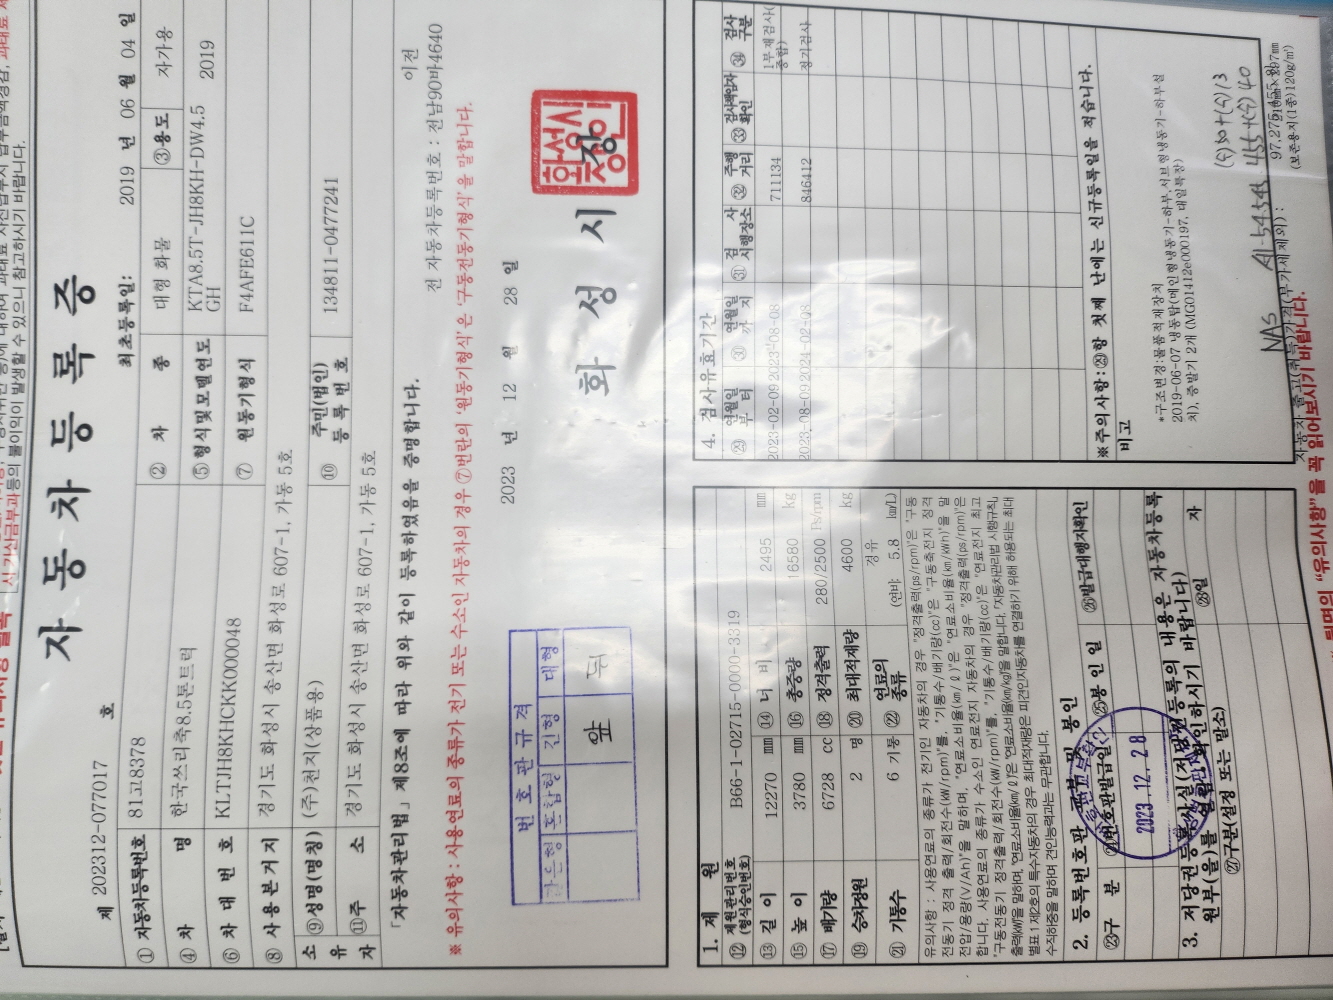 자동차등록증
제 202312-077017 호
최초등록일: 2019 년 06 월 04 일
① 자동차등록번호 81고8378 ② 차 종 대형 화물 ③용도 자가용
④ 차 명 한국쓰리축8.5톤트럭 ⑤ 형식및모델연도 KTA8.5T-JH8KH-DW4.5 2019
GH
⑥ 차 대 번 호 KLTJH8KHCKK000048 ⑦ 원동기형식 F4AFE611C
⑧ 사 용 본 거 지 경기도 화성시 송산면 화성로 607-1, 가동 5호
소유자 ⑨성명(명칭) (주)천지(상품용) ⑩ 주민(법인)등록번호 134811-0477241
⑪주 소 경기도 화성시 송산면 화성로 607-1, 가동 5호
「자동차관리법」 제8조에 따라 위와 같이 등록하였음을 증명합니다.
이전
전 자동차등록번호 : 전남90바4640
※ 유의사항 : 사용연료의 종류가 전기 또는 수소인 자동차의 경우 ⑦번란의 '원동기형식' 은 '구동전동기형식' 을 말합니다.
2023 년 12 월 28 일
번 호 판 규 격
혼합형 긴형 대형
앞 뒤
화 성 시 장
화성시장인
1. 제 원
⑫ 제원관리번호 (형식승인번호) B66-1-02715-0000-3319
⑬ 길 이 12270 mm ⑭ 너 비 2495 mm
⑮ 높 이 3780 mm ⑯ 총중량 16580 kg
⑰ 배기량 6728 cc ⑱ 정격출력 280/2500 Ps/rpm
⑲ 승차정원 2 명 ⑳ 최대적재량 4600 kg
㉑ 기통수 6 기통 ㉒ 연료의 종류 경유 (연비 5.8 km/L)
유의사항 : 사용연료의 종류가 전기인 자동차의 경우 "정격출력(ps/rpm)"은 "구동
전동기 정격 출력/회전수(kW/rpm)"를, "기통수/배기량(cc)"은 "구동축전지 정격
전압/용량(V/Ah)"을 말하며, "연료소비율(km/ℓ)"은 "연료소비율(km/kWh)"을 말
합니다. 사용연료의 종류가 수소인 연료전지 자동차의 경우 "정격출력(ps/rpm)"은
"구동전동기 정격출력/회전수(kW/rpm)"를, "기통수/배기량(cc)"은 "연료전지 최고
출력(kW)"을 말하며, "연료소비율(km/ℓ)"은 "연료소비율(km/kg)"을 말합니다. 「자동차관리법 시행규칙」
별표 1 제2호의 특수자동차의 경우 최대적재량은 피견인자동차를 연결하기 위해 허용되는 최대
수직하중을 말하며 견인능력과는 무관합니다.
2. 등록번호판 교부 및 봉인
㉓구 분 ㉔번호판발급일 ㉕봉 인 일 ㉖발급대행자확인
2023.12.28
3. 저당권등록사실(저당권등록의 내용은 자동차등록
원부(을)를 열람·확인하시기 바랍니다)
㉗구분(설정 또는 말소) ㉘일 자
4. 검사유효기간
㉙ 연월일 부터 ㉚ 연월일 까지 ㉛ 검 사 시행장소 ㉜ 주행거리 ㉝ 검사책임자확인 ㉞ 검사구분
2023-02-09 2023-08-08 711134
2023-08-09 2024-02-08 846412 정기검사
※주의사항:㉙항 첫째 난에는 신규등록일을 적습니다.
비고
*구조변경:물품적재장치
2019-06-07 냉동탑(메인형냉동기-하부,서브형냉동기-하부설
치), 증발기 2개 (MG01412e000197, 태일특장)
NAS
(보존용지(1종)120g/㎡)
"유의사항"을 꼭 읽어보시기 바랍니다.